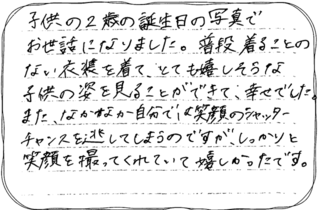 子供の2歳の誕生日の写真で
お世話になりました。普段着ることの
ない衣装を着て、とても嬉しそうな
子供の姿を見ることができて、幸せでした。
また、なかなか自分では笑顔のシャッター
チャンスを逃してしまうのですが、しっかりと
笑顔を撮ってくれていて嬉しかったです。